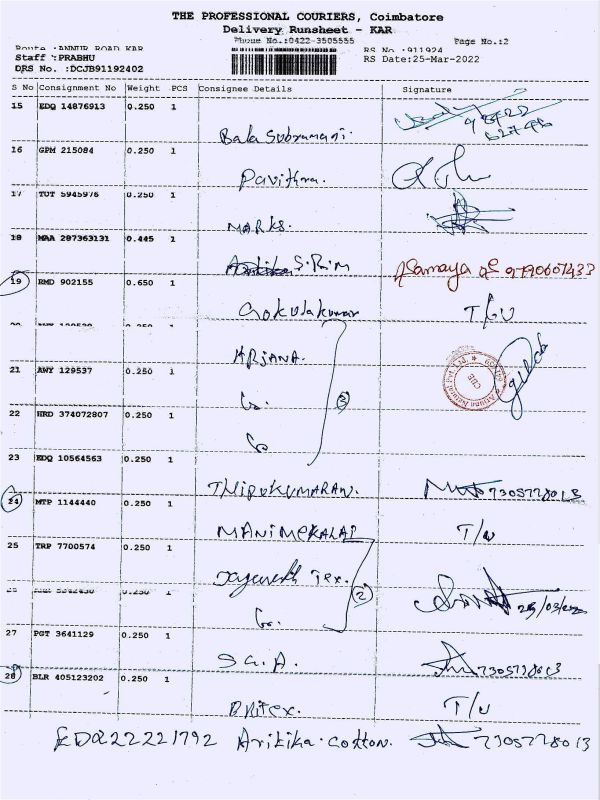 THE PROFESSIONAL COURIERS, Coimbatore
Delivery Runsheet - KAR
Phone No.:0422-3505555
Page No.:2
Route :ANNUR ROAD KAR
RS No :911924
Staff :PRABHU
RS Date:25-Mar-2022
DRS No. :DCJB91192402
S No Consignment No Weight PCS Consignee Details Signature
15 EDQ 14876913 0.250 1
Bala Subramani.
16 GPM 215084 0.250 1
Pavithra.
17 TUT 5945976 0.250 1
MARKS.
18 MAA 287363131 0.445 1
S. Rim 9790607433
19 RMD 902155 0.650 1
Gokulakumar T/U
20 0.250 1
ARJANA.
21 AWY 129537 0.250 1
3
22 HRD 374072807 0.250 1
23 EDQ 10564563 0.250 1
THIRUKUMARAN. 7305778013
24 MTP 1144440 0.250 1
MANIMEKALAI T/U
25 TRP 7700574 0.250 1
Tex.
2
0.250 1
25/03/22
27 PGT 3641129 0.250 1
S.G.A. 7305778013
28 BLR 405123202 0.250 1
Britex. T/U
EDQ22221792 Aritika. cotton. 7305778013